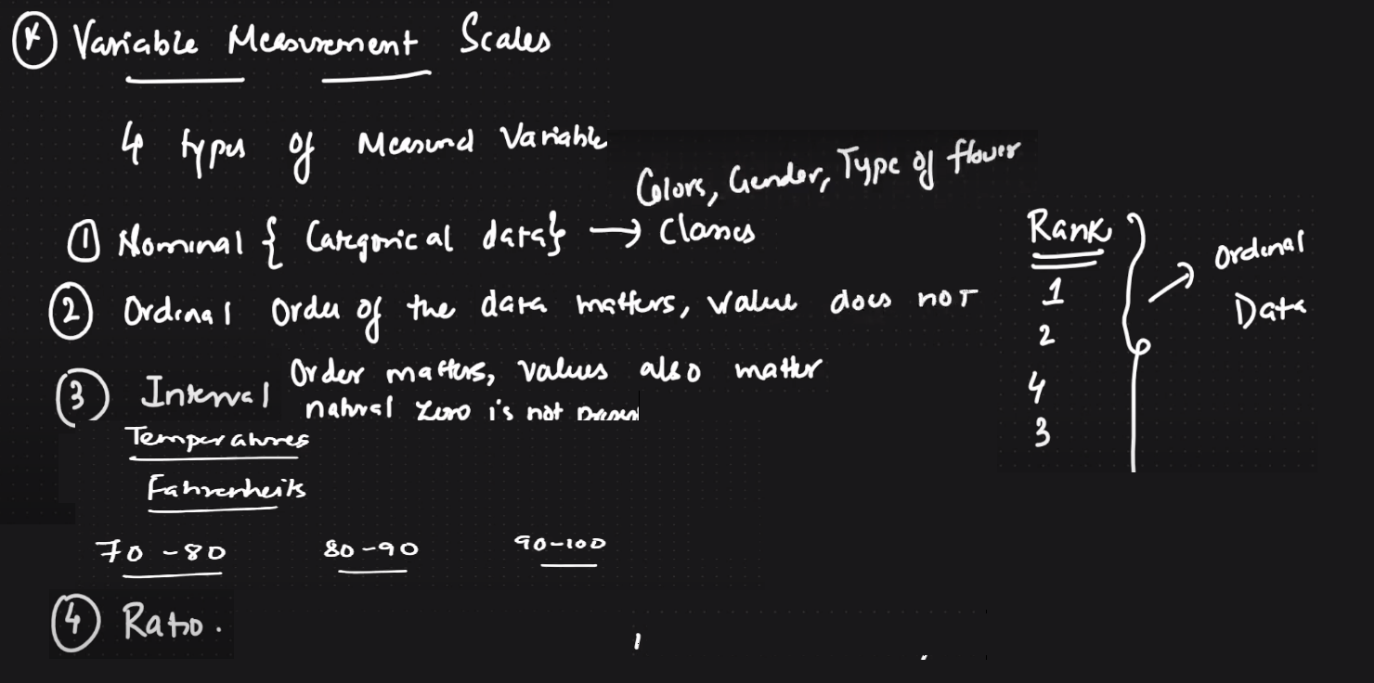 * Variable Measurement Scales
4 types of Measured Variable
Colors, Gender, Type of flower
① Nominal { Categorical data} → Classes
② Ordinal Order of the data matters, Value does not
③ Interval Order matters, values also matter
natural zero is not present
Temperatures
Fahrenheits
70 - 80 80 - 90 90 - 100
④ Ratio.
Rank
1
2
4
3
→ Ordinal
Data